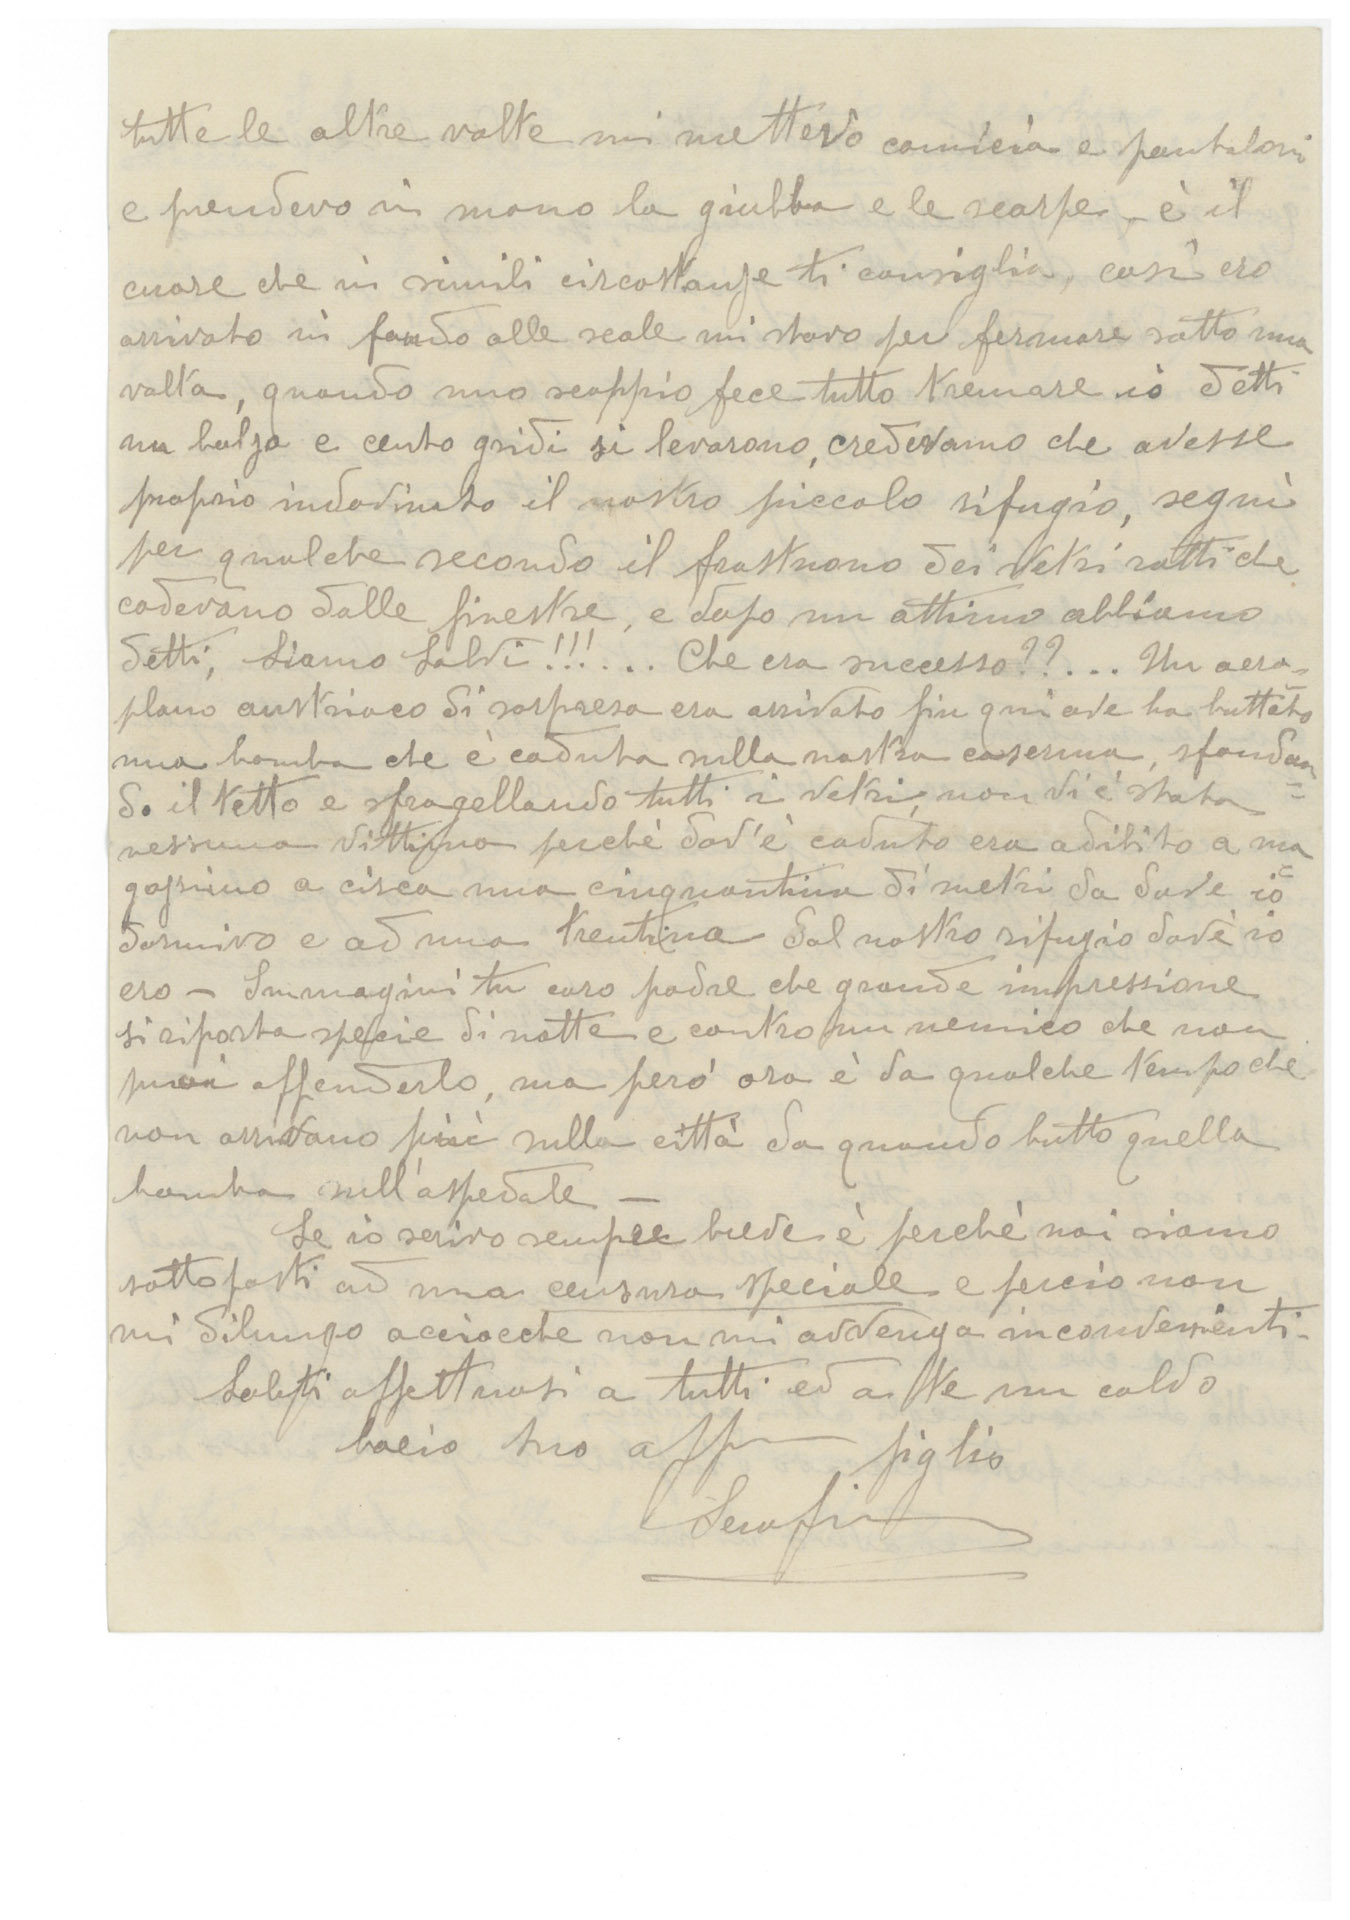 tutte le altre volte mi mettevo camicia e pantaloni
e prendevo in mano la giubba e le scarpe, è il
cuore che in simili circostanze ti consiglia, così ero
arrivato in fondo alle scale mi stavo per fermare sotto una
volta, quando uno scoppio fece tutto tremare io detti
un balzo e cento gridi si levarono, credevamo che avesse
proprio indovinato il nostro piccolo rifugio, seguì
per qualche secondo il frastuono dei vetri rotti che
cadevano dalle finestre, e dopo un attimo abbiamo
detti, Siamo Salvi!!!... Che era successo??... Un aero=
plano austriaco di sorpresa era arrivato fin qui ove ha buttato
una bomba che è caduta sulla nostra caserma, sfondan=
do il tetto e sfragellando tutti i vetri, non vi è stata
nessuna vittima perchè dov'è caduto era adibito a ma=
gazzino a circa una cinquantina di metri da dove io
dormivo e ad una trentina dal nostro rifugio dovè io
ero - Immagini tu caro padre che grande impressione
si riporta specie di notte e contro un nemico che non
puoi offenderlo, ma però ora è da qualche tempo che
non arrivano più sulla città da quando buttò quella
bomba sull'ospedale -
Se io scrivo sempre breve è perchè noi siamo
sottoposti ad una censura speciale e perciò non
mi dilungo acciocchè non mi avvenga inconvenienti.
Saluti affettuosi a tutti ed a te un caldo
bacio tuo aff figlio
Serafin